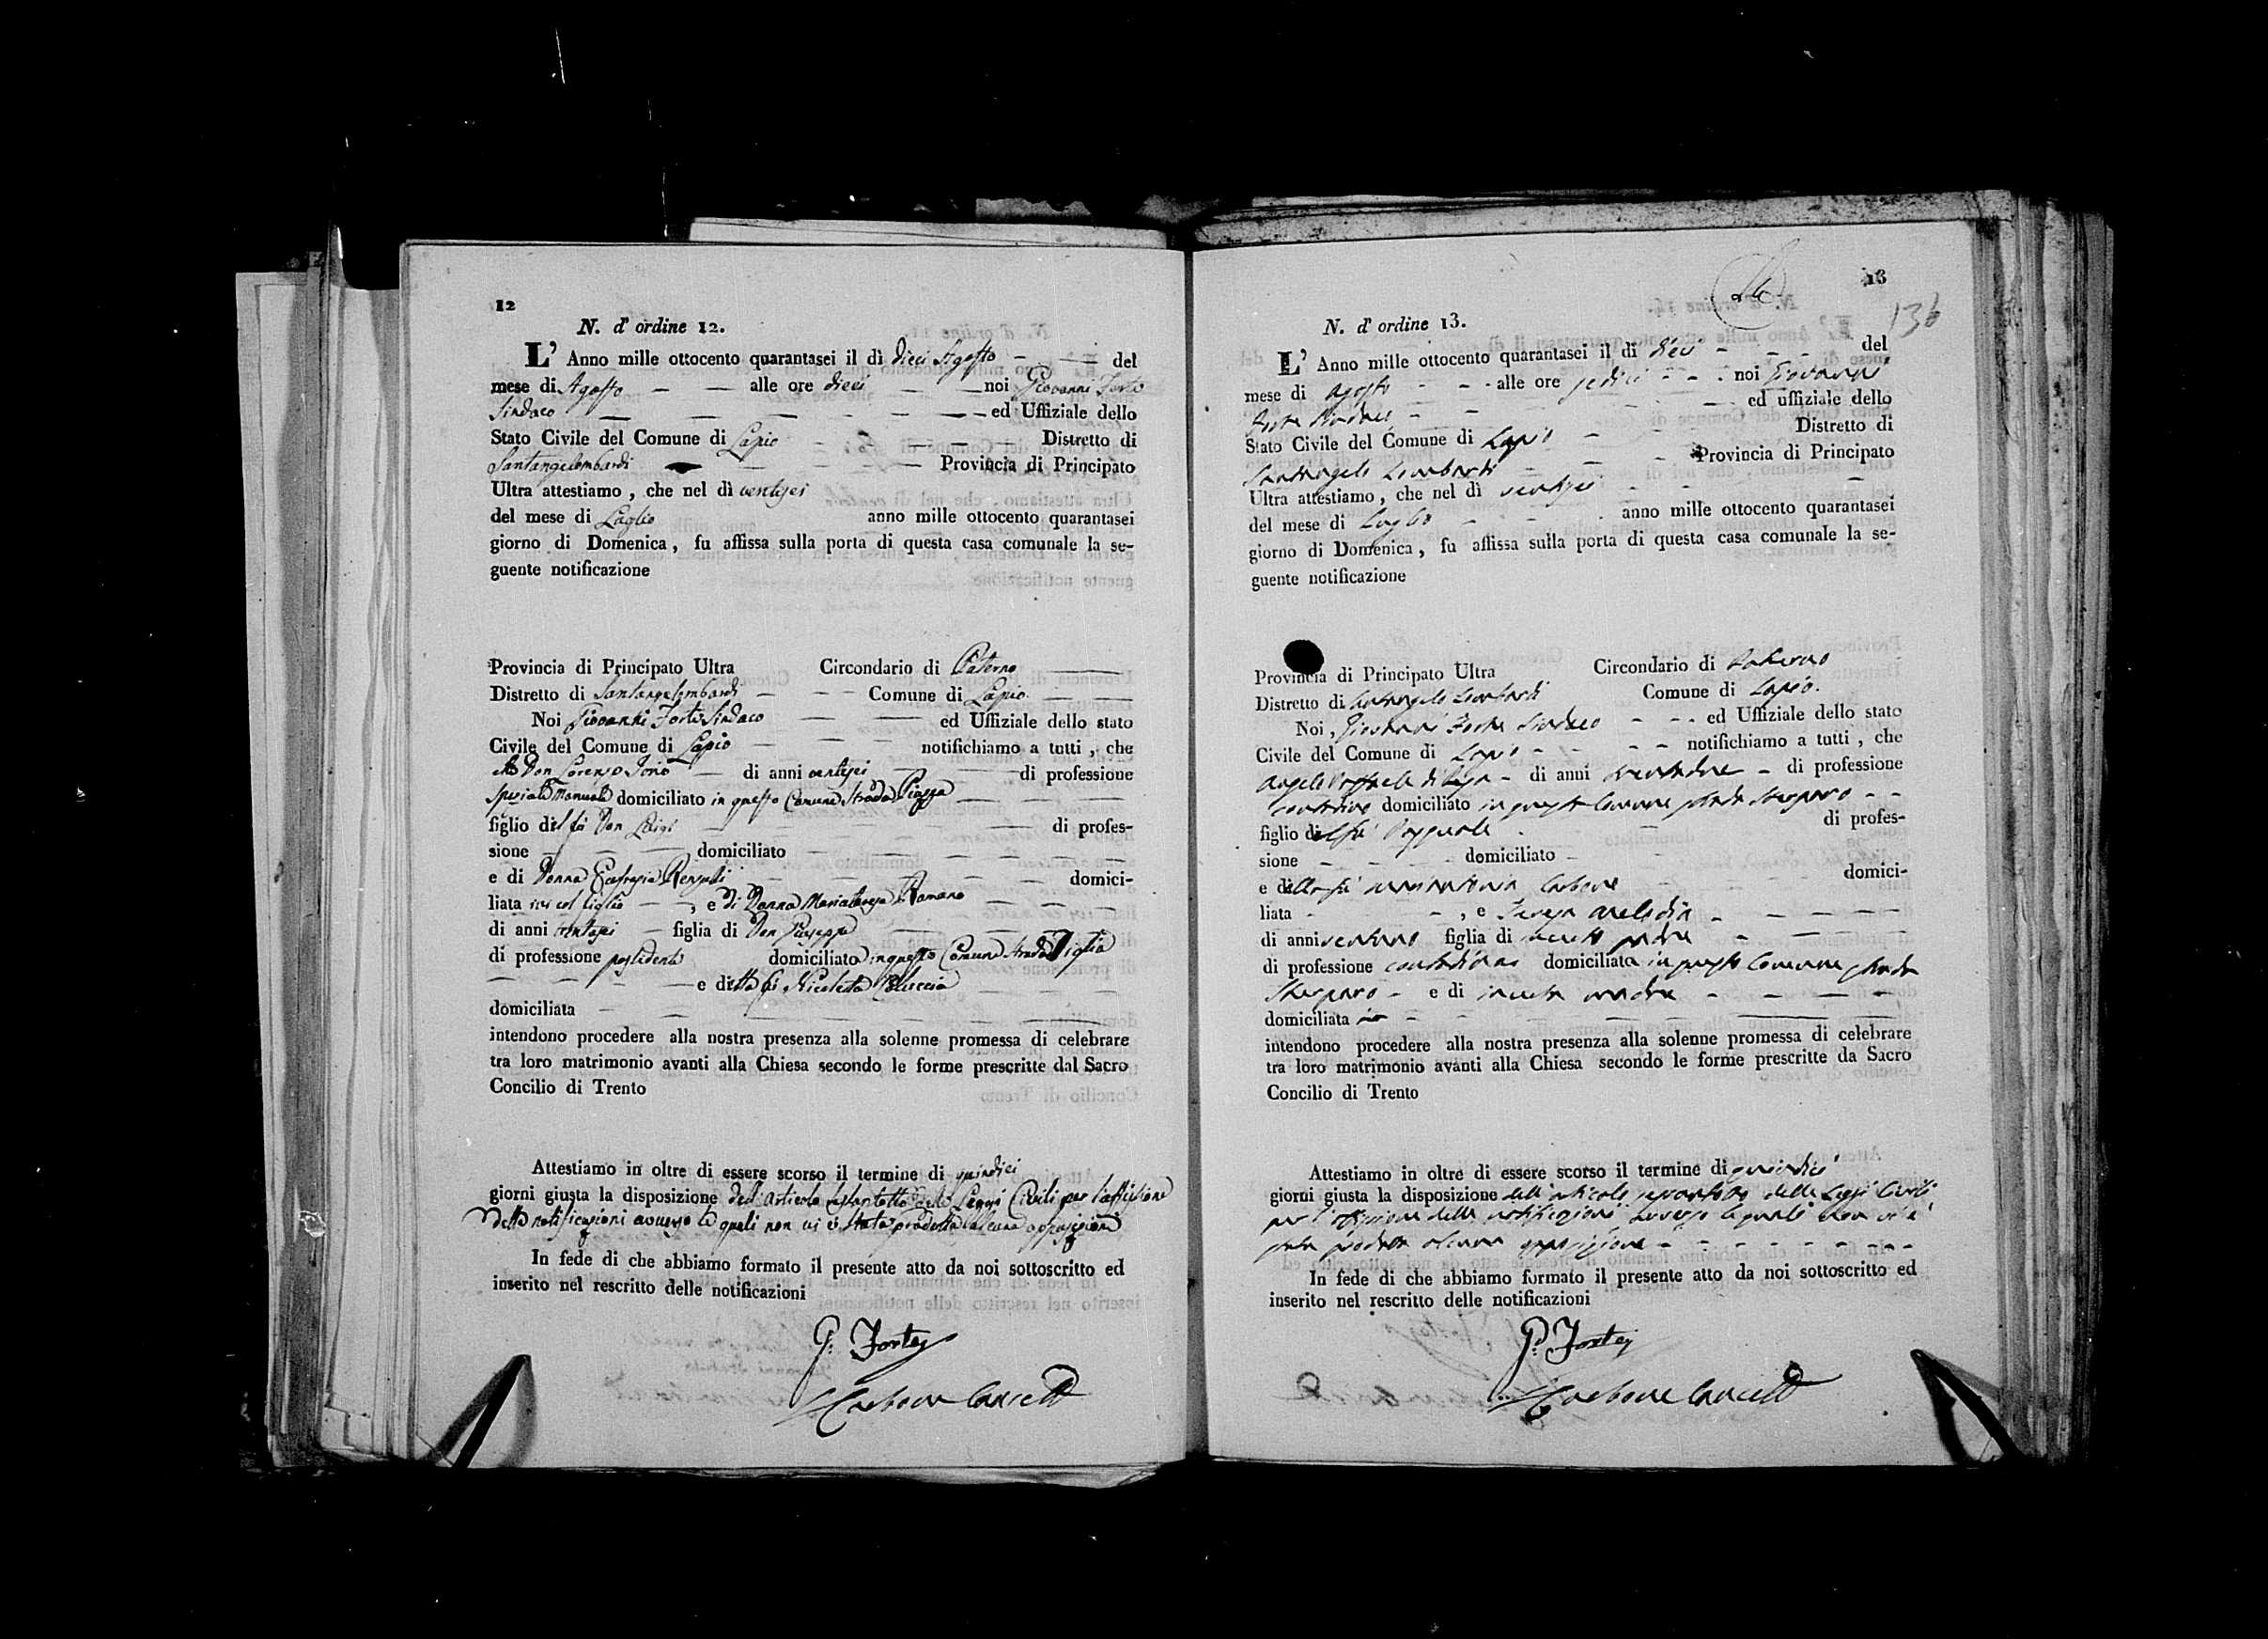 12
N. d' ordine 12.
L' Anno mille ottocento quarantasei il dì dieci Agosto del
mese di Agosto alle ore dieci noi Giovanni Forte
Sindaco ed Uffiziale dello
Stato Civile del Comune di Lapio Distretto di
Santangelombardi Provincia di Principato
Ultra attestiamo, che nel dì ventisei
del mese di Luglio anno mille ottocento quarantasei
giorno di Domenica, fu affissa sulla porta di questa casa comunale la se-
guente notificazione
Provincia di Principato Ultra Circondario di Paterno
Distretto di Santangelombardi Comune di Lapio
Noi Giovanni Forte Sindaco ed Uffiziale dello stato
Civile del Comune di Lapio notifichiamo a tutti, che
Don Lorenzo di anni ventisei di professione
Speziale Manuale domiciliato in questo Comune Strada Piazza
figlio del fù Don Luigi di profes-
sione domiciliato
e di Donna domici-
liata ivi col figlio, e di Donna Mariateresa Romano
di anni figlia di Don Giuseppe
di professione possidente domiciliato in questo Comune Strada
e della fù Nicoletta
domiciliata
intendono procedere alla nostra presenza alla solenne promessa di celebrare
tra loro matrimonio avanti alla Chiesa secondo le forme prescritte dal Sacro
Concilio di Trento
Attestiamo in oltre di essere scorso il termine di quindici
giorni giusta la disposizione dell'articolo delle Leggi Civili per l'affissione
delle notificazioni avverso le quali non vi è stata prodotta alcuna opposizione
In fede di che abbiamo formato il presente atto da noi sottoscritto ed
inserito nel rescritto delle notificazioni
G. Forte
Carbone Cancell
13
136
N. d' ordine 13.
L' Anno mille ottocento quarantasei il di dieci del
mese di agosto alle ore sedici noi Giovanni
Forte Sindaco ed uffiziale dello
Stato Civile del Comune di Lapio Distretto di
Santangelo Lombardi Provincia di Principato
Ultra attestiamo, che nel dì ventisei
del mese di Luglio anno mille ottocento quarantasei
giorno di Domenica, fu affissa sulla porta di questa casa comunale la se-
guente notificazione
Provincia di Principato Ultra Circondario di Paterno
Distretto di Santangelo Lombardi Comune di Lapio.
Noi, Giovanni Forte Sindaco ed Uffiziale dello stato
Civile del Comune di Lapio notifichiamo a tutti, che
Angelo Raffaele di anni di professione
contadino domiciliato in questo Comune strada
figlio del fù Pasquale di profes-
sione domiciliato
e della fù Mariantonia Carbone domici-
liata, e Teresa Melodia
di anni ventuno figlia di incerto padre
di professione contadina domiciliata in questo Comune strada
e di incerta madre
domiciliata
intendono procedere alla nostra presenza alla solenne promessa di celebrare
tra loro matrimonio avanti alla Chiesa secondo le forme prescritte da Sacro
Concilio di Trento
Attestiamo in oltre di essere scorso il termine di quindici
giorni giusta la disposizione dell'articolo delle Leggi Civili
per l'affissione delle notificazioni avverso le quali non vi è
stata prodotta alcuna opposizione
In fede di che abbiamo formato il presente atto da noi sottoscritto ed
inserito nel rescritto delle notificazioni
G. Forte
Carbone Cancell